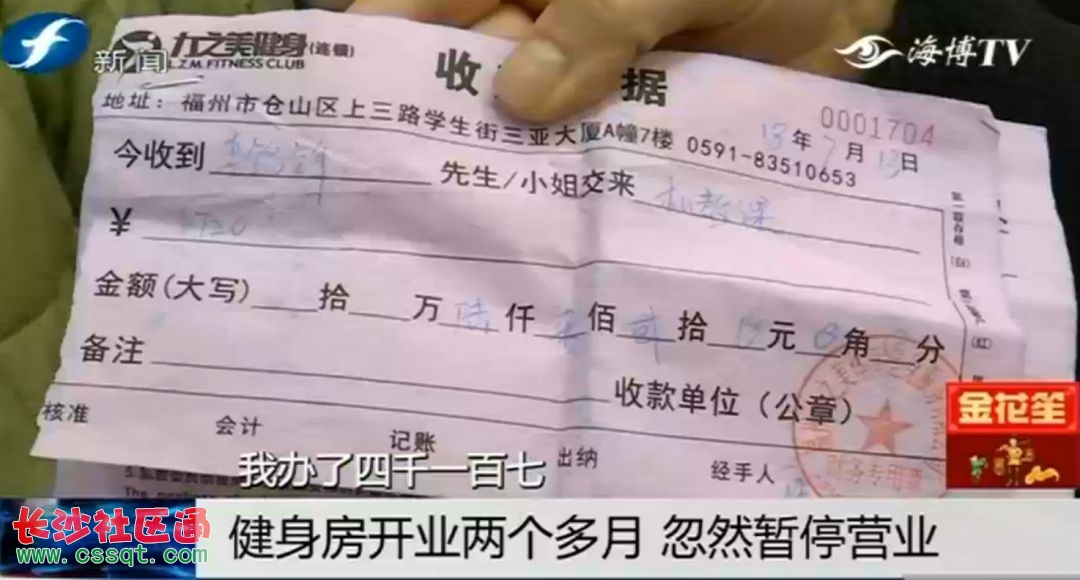 新闻
力之美健身(连锁)
L.Z.M. FITNESS CLUB
收 据
海博TV
地址:福州市仓山区上三路学生街三亚大厦A幢7楼 0591-83510653
0001704
13年7月13日
今收到 先生/小姐交来 私教课
¥
金额(大写) 拾 万 陆仟 佰 贰拾 元 角 分
备注
收款单位(公章)
核准 会计 记账 出纳 经手人
财务专用章
金花笙
我办了四千一百七
健身房开业两个多月 忽然暂停营业
长沙社区通
www.cssqt.com